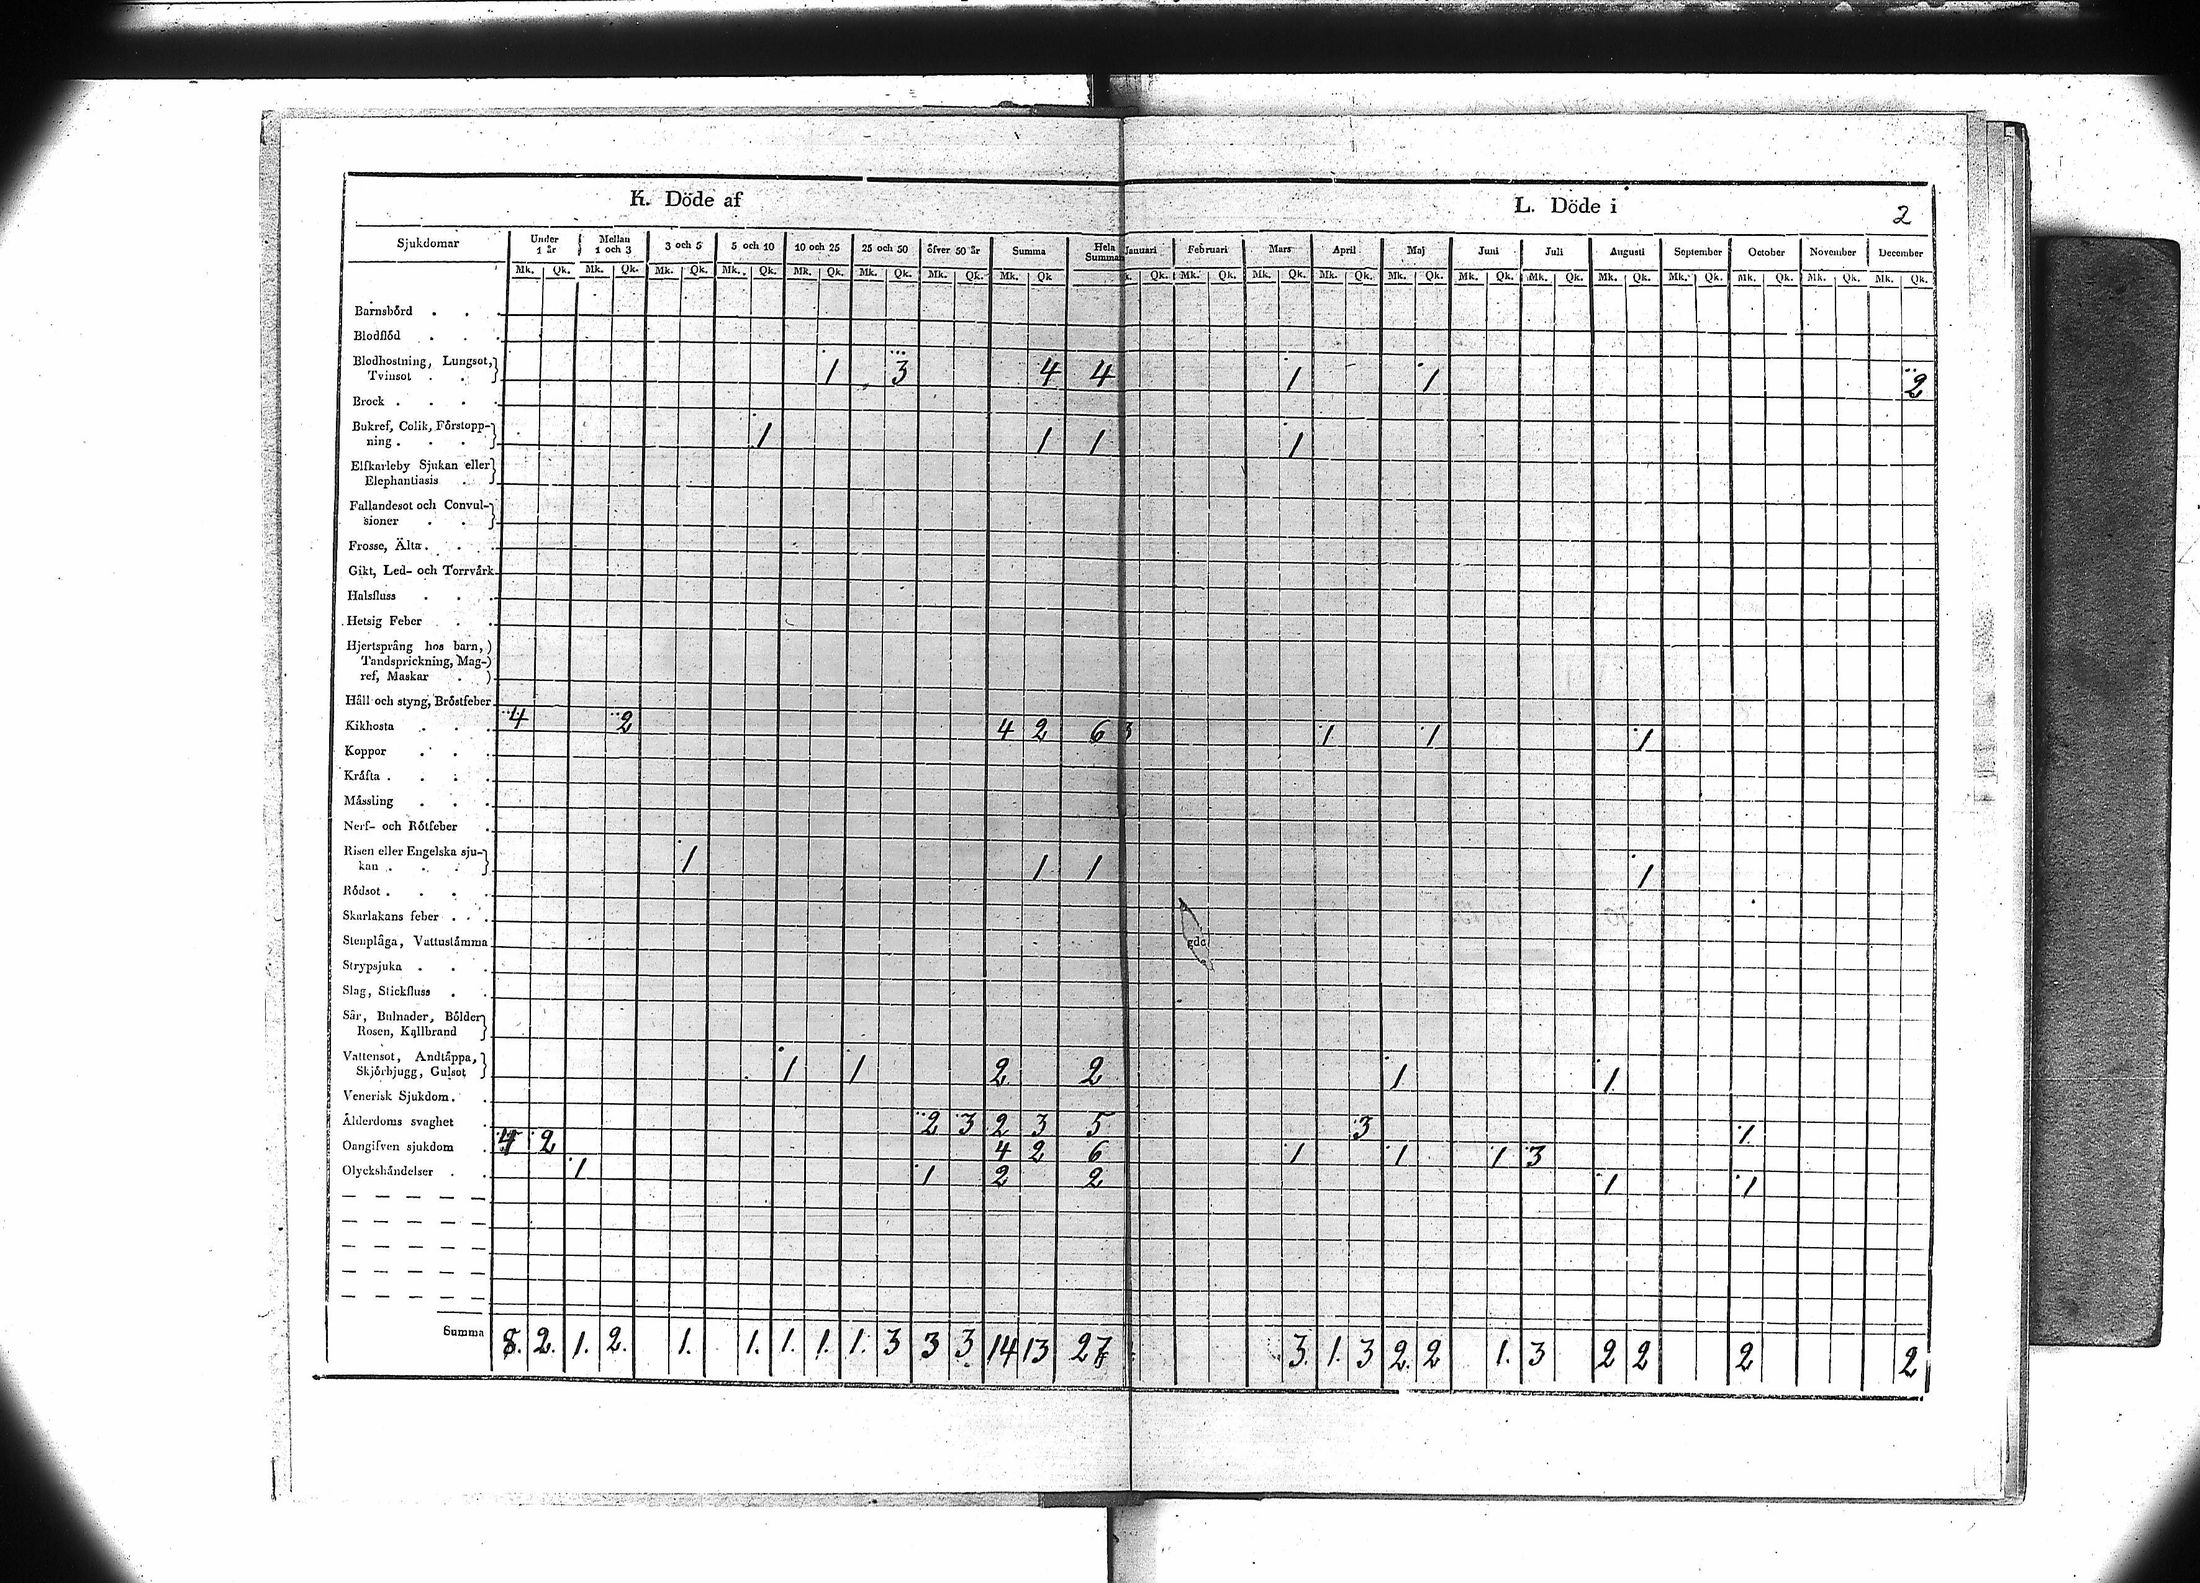 K. Döde af
L. Döde i
2
Sjukdomar Under 1 år Mellan 1 och 3 3 och 5 5 och 10 10 och 25 25 och 50 öfver 50 år Summa Hela Summan Januari Februari Mars April Maj Juni Juli Augusti September October November December
Mk. Qk. Mk. Qk. Mk. Qk. Mk. Qk. Mk. Qk. Mk. Qk. Mk. Qk. Mk. Qk Qk. Mk. Qk. Mk. Qk. Mk. Qk. Mk. Qk. Mk. Qk. Mk. Qk. Mk. Qk. Mk. Qk. Mk. Qk. Mk. Qk. Mk. Qk.
Barnsbörd
Blodflöd
Blodhostning, Lungsot,
Tvinsot 1 3 4 4 1 1 2
Brock
Bukref, Colik, Förstopp-
ning 1 1 1 1
Elfkarleby Sjukan eller
Elephantiasis
Fallandesot och Convul-
sioner
Frosse, Älta
Gikt, Led- och Torrvärk
Halsfluss
Hetsig Feber
Hjertsprång hos barn,
Tandsprickning, Mag-
ref, Maskar
Håll och styng, Bröstfeber
Kikhosta 4 2 4 2 6 3 1 1 1
Koppor
Kräfta
Mässling
Nerf- och Rötfeber
Risen eller Engelska sju-
kan 1 1 1 1
Rödsot
Skarlakans feber
Stenplåga, Vattustämma
Strypsjuka
Slag, Stickfluss
Sår, Bulnader, Bölder
Rosen, Kallbrand
Vattensot, Andtäppa,
Skjörbjugg, Gulsot 1 1 2 2 1 1
Venerisk Sjukdom
Ålderdoms svaghet 2 3 2 3 5 3 1
Oangifven sjukdom 4 2 4 2 6 1 1 1 3
Olyckshändelser 1 1 2 2 1 1
Summa 8. 2. 1. 2. 1. 1. 1. 1. 1. 3 3 3 14 13 27 3. 1. 3 2. 2 1. 3 2 2 2 2